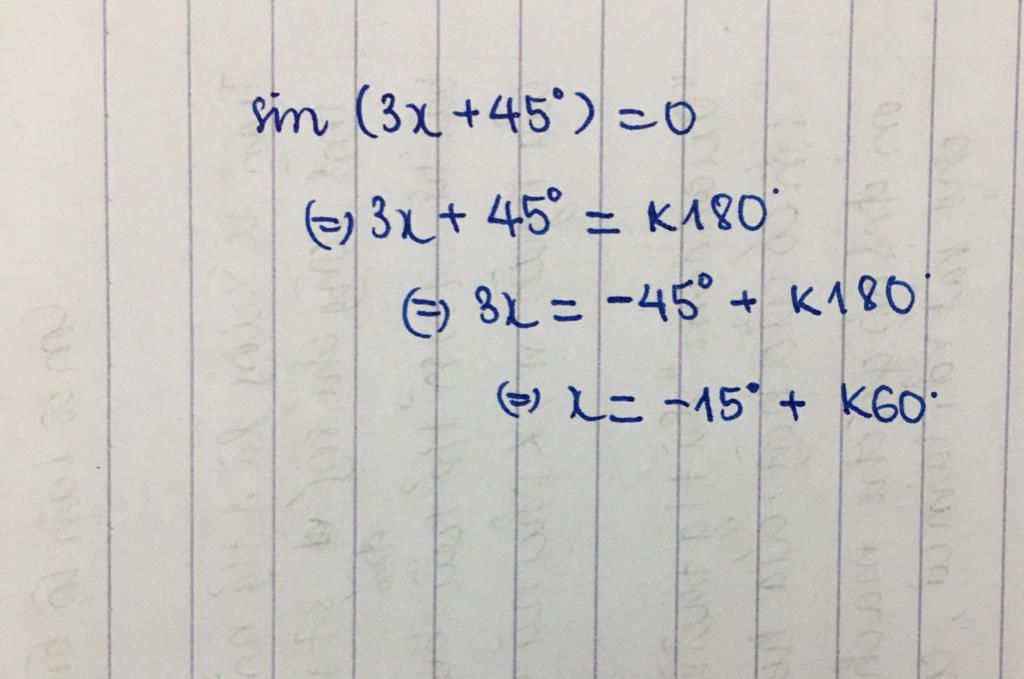 sin (3x + 45°) = 0
(=) 3x + 45° = K180°
(=) 3x = -45° + K180°
(=) x = -15° + K60°